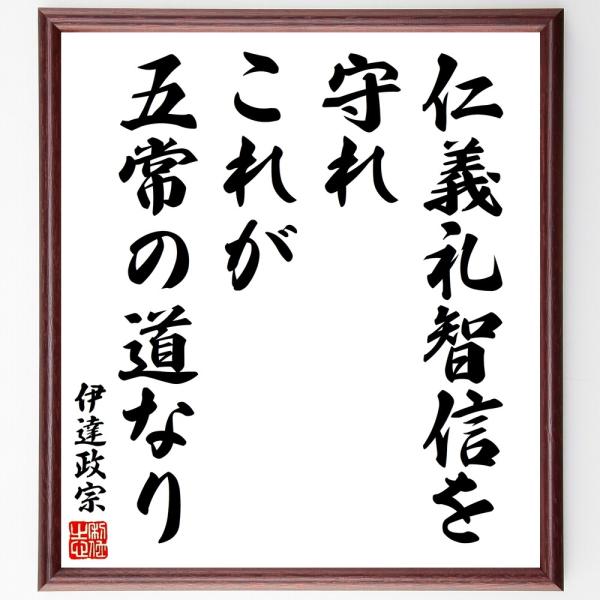 仁義礼智信を
守れ
これが
五常の道なり
伊達政宗